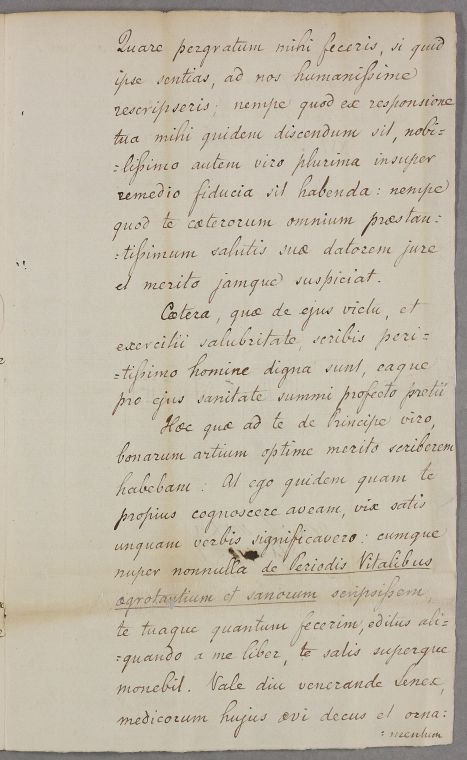 Quare pergratum mihi feceris, si quid
ipse sentias, ad nos humanissime
rescripseris; nempe quod ex responsione
tua mihi quidem discendum sit, nobi=
=lissimo autem viro plurima insuper
remedio fiducia sit habenda: nempe
quod te cæterorum omnium præstan:
:tissimum salutis suæ datorem jure
et merito jamque suspiciat.
Cætera, quæ de ejus victu, et
exercitii salubritate, scribis peri=
=tissimo homine digna sunt, eaque
pro ejus sanitate summi profecto pretii
Hæc quæ ad te de Principe viro,
bonarum artium optime merito scriberem
habebam: At ego quidem quam te
propius cognoscere aveam, vix satis
unquam verbis significavero: cumque
nuper nonnulla de Periodis Vitalibus
ægrotantium et sanorum scripsissem,
te tuaque quantum fecerim, editus ali=
=quando a me liber, te satis superque
monebit. Vale diu venerande Senex,
medicorum hujus ævi decus et orna:
:mentum